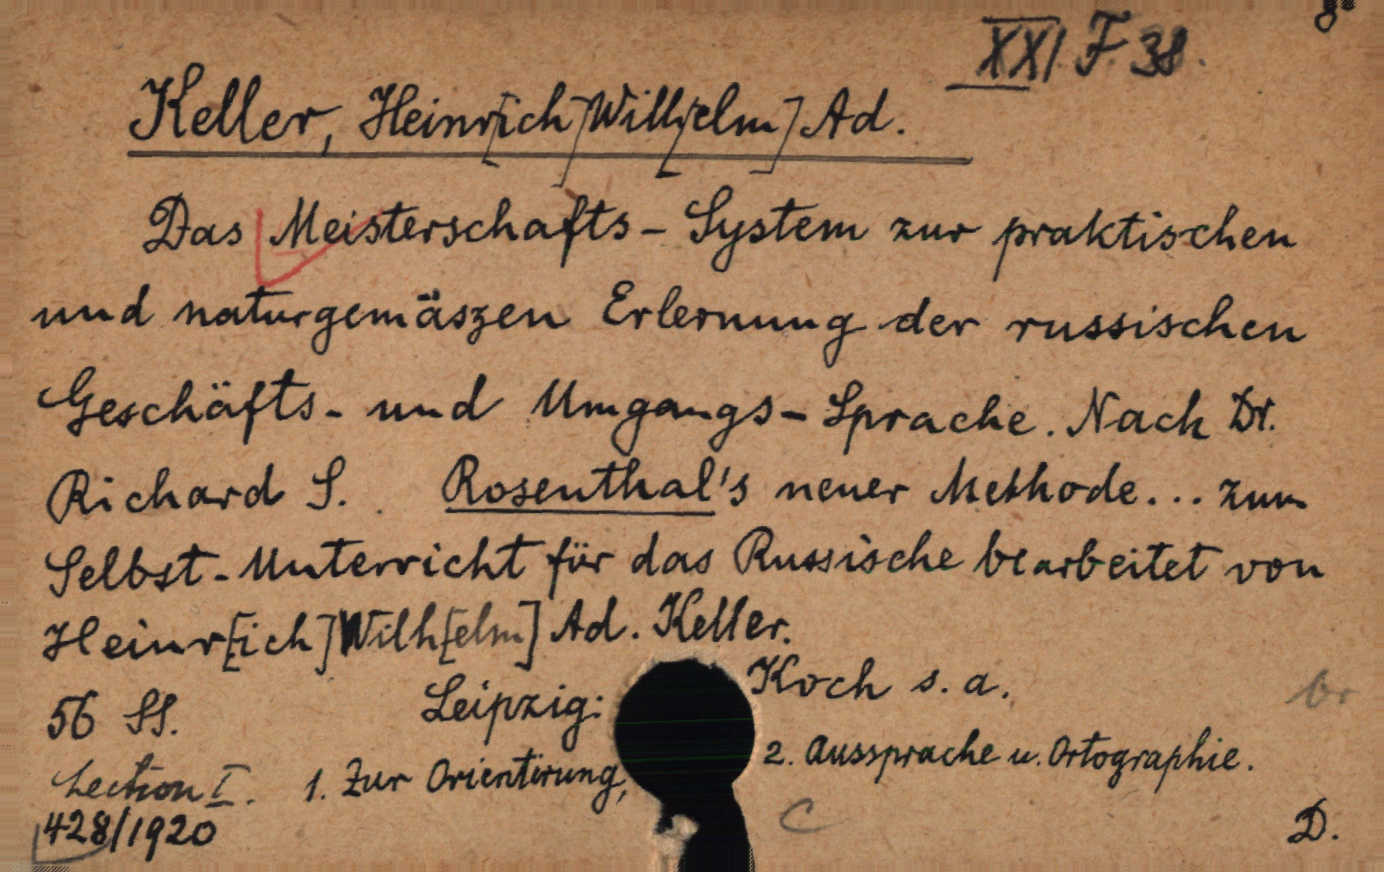 8°
XXI. F. 38.
Keller, Heinr[ich] Wilh[elm] Ad.
Das Meisterschafts-System zur praktischen
und naturgemäszen Erlernung der russischen
Geschäfts- und Umgangs-Sprache. Nach Dr.
Richard S. Rosenthal's neuer Methode... zum
Selbst-Unterricht für das Russische bearbeitet von
Heinr[ich] Wilh[elm] Ad. Keller.
56 SS. Leipzig: Koch s. a. br
Lection I. 1. Zur Orientirung, 2. Aussprache u. Ortographie.
428/1920 C D.